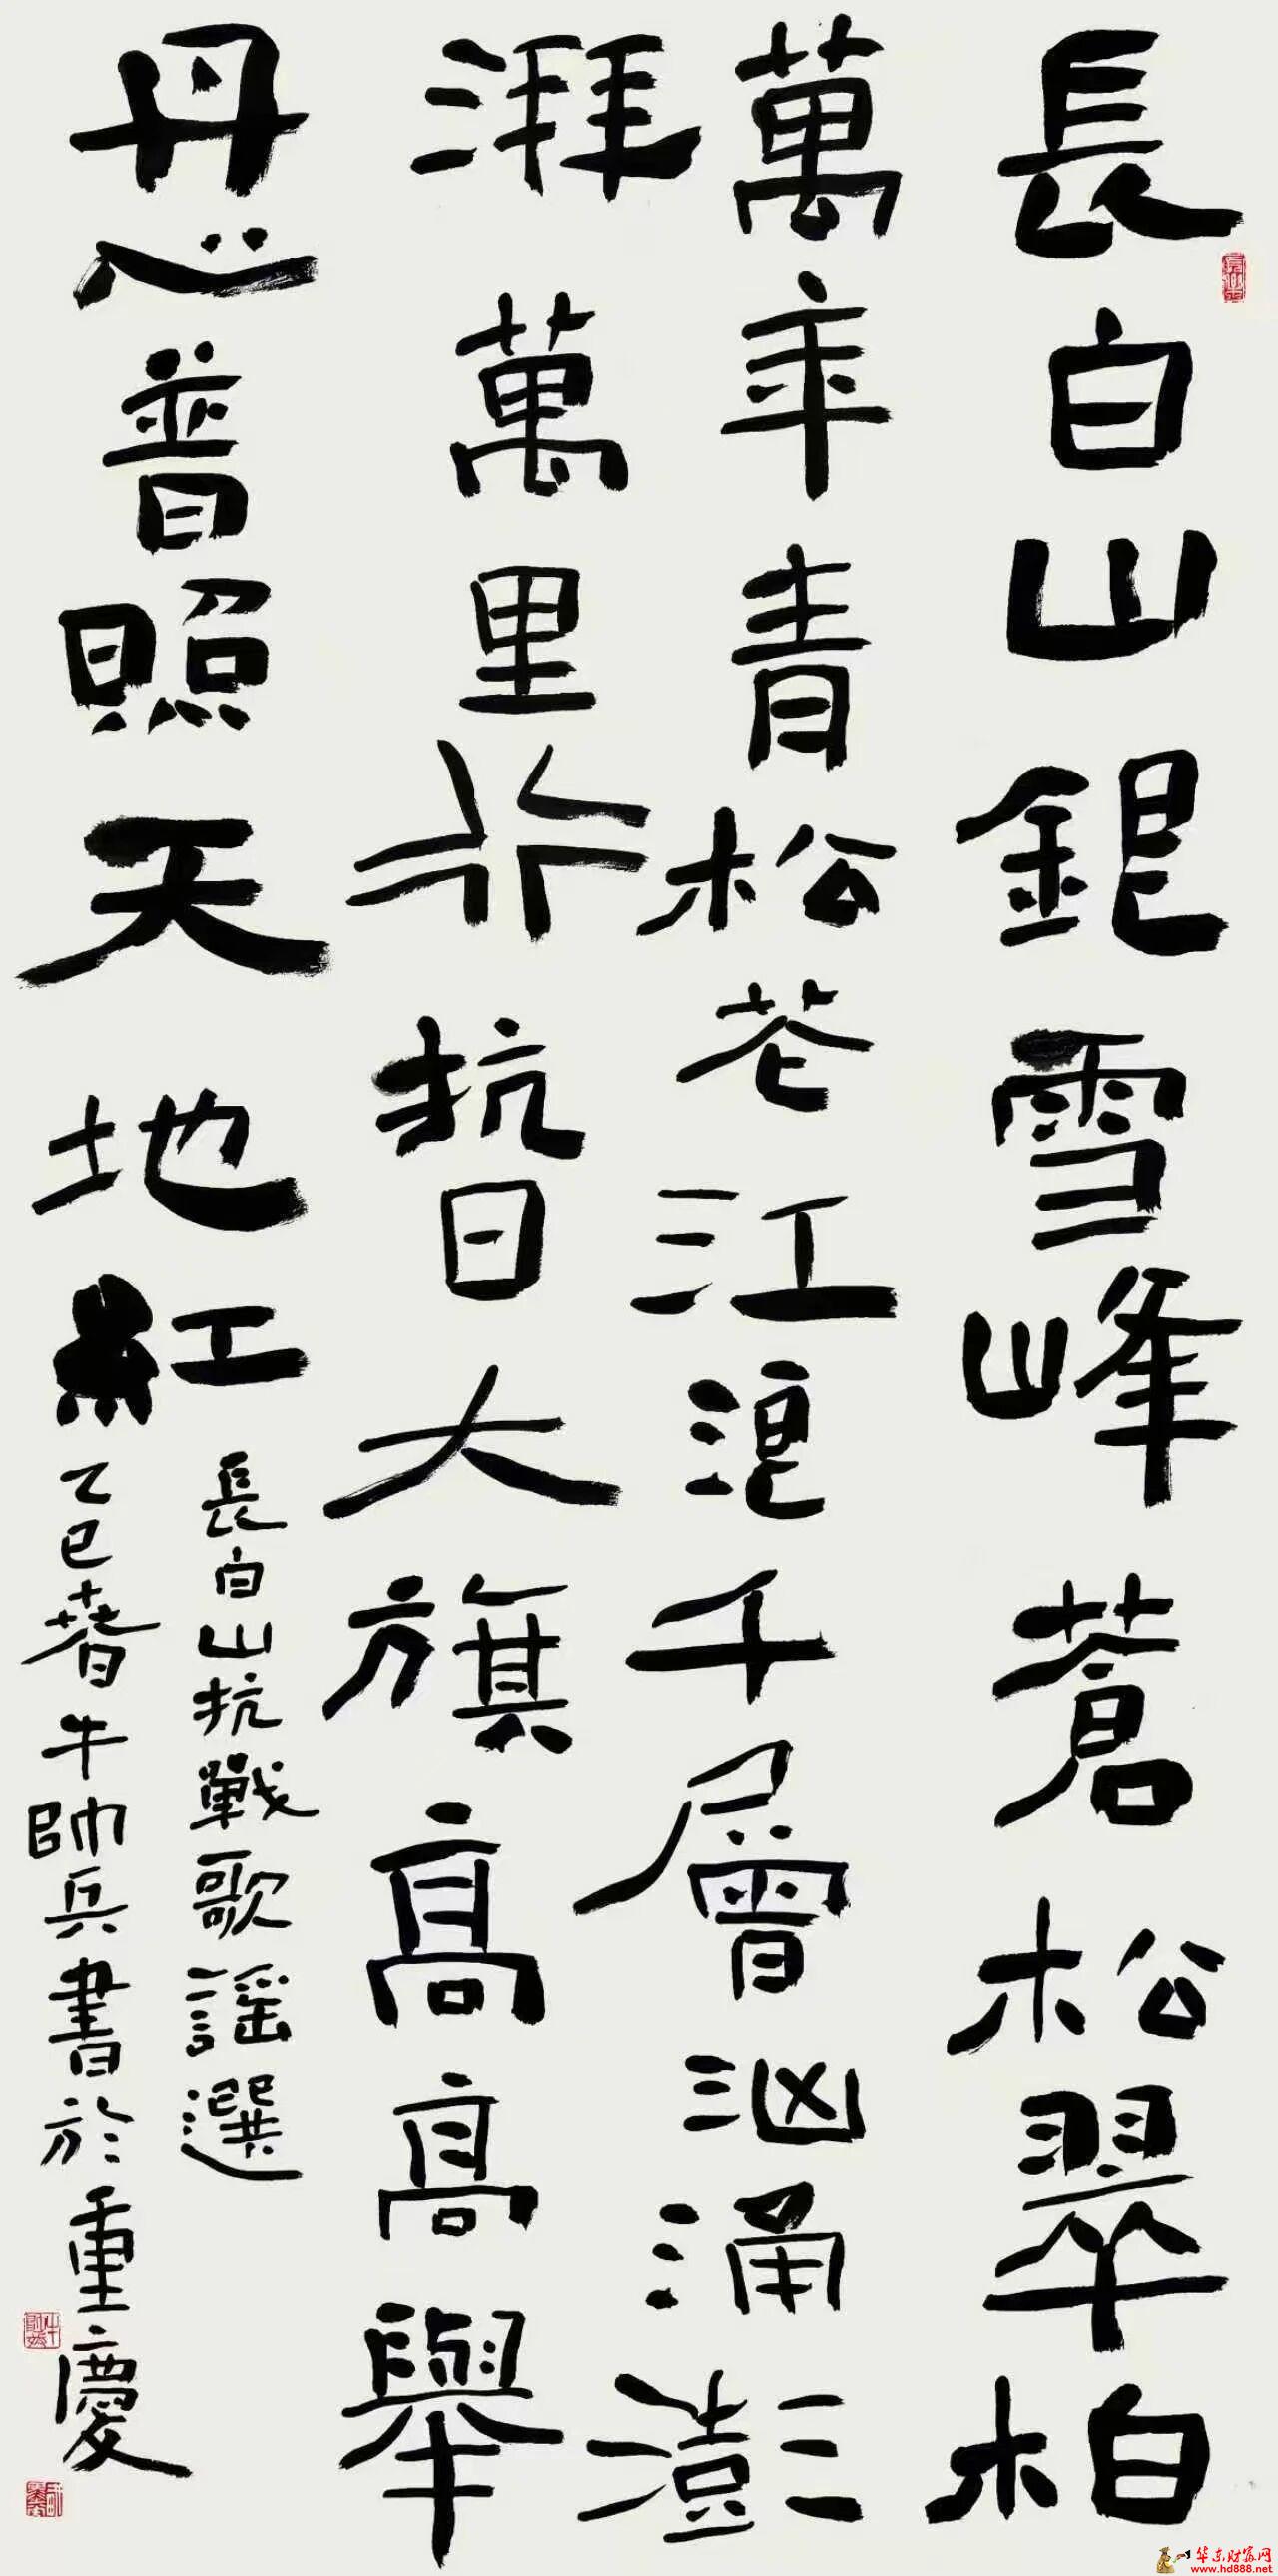 長白山銀雪峰蒼松翠柏
萬年青松花江浪千層洶涌澎
湃萬里行抗日大旗高高舉
丹心普照天地紅
長白山抗戰歌謡選
乙巳春牛帥兵書於重慶
华东财富网
www.hd888.net